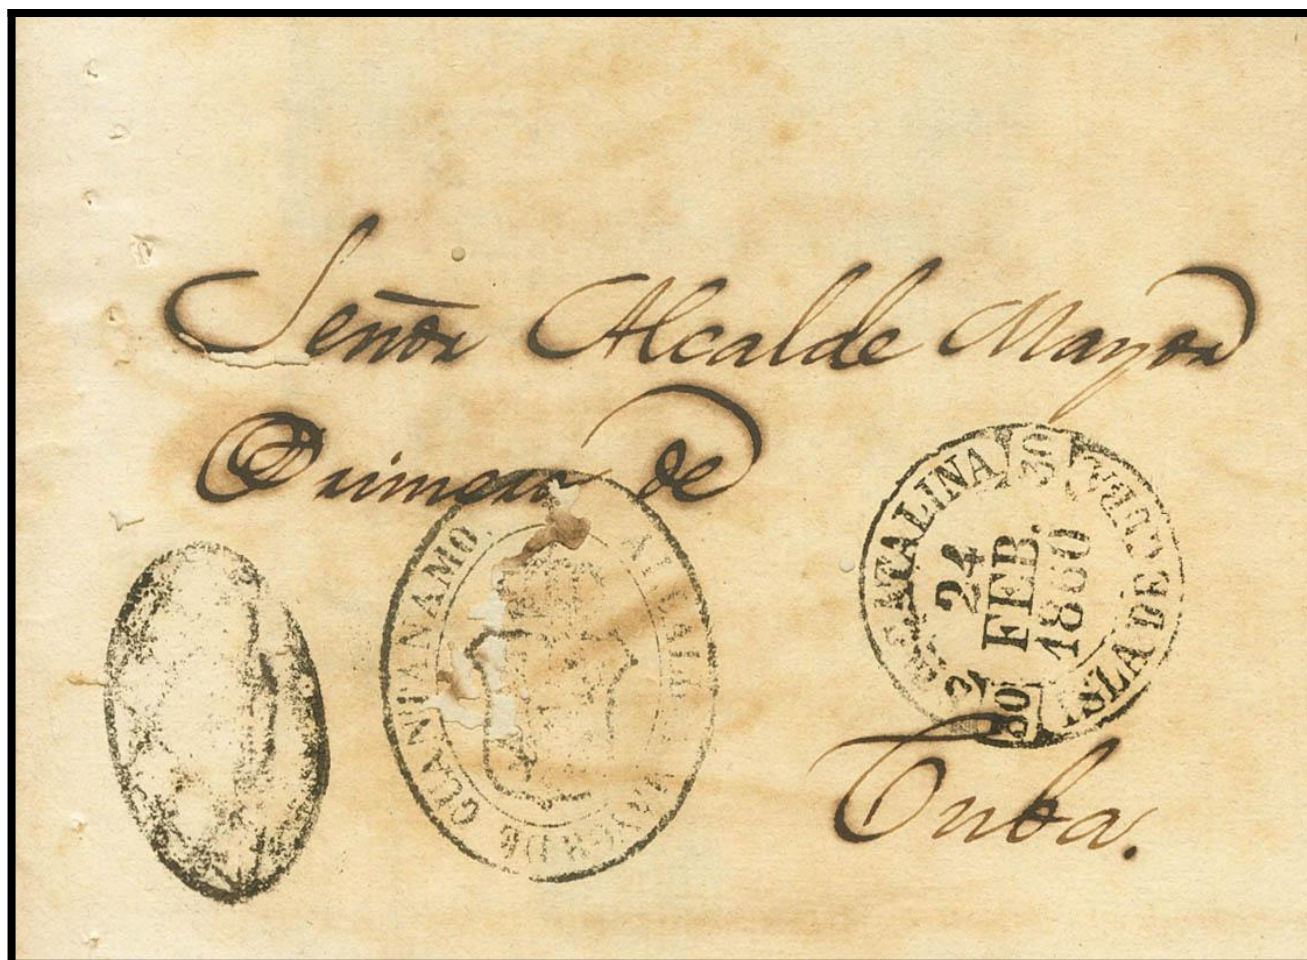 Señor Alcalde Mayor
Primero de
Cuba.
DE GUANTANAMO.
CATALINA
ISLA DE CUBA
24
FEB.
1860